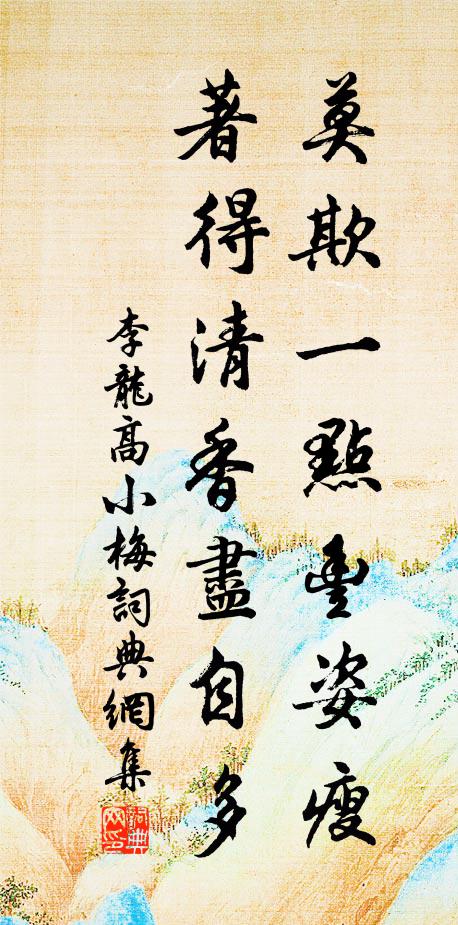 莫欺一點豐姿瘦
著得清香盡自多
李龍高小梅詞典網集
詞典網印